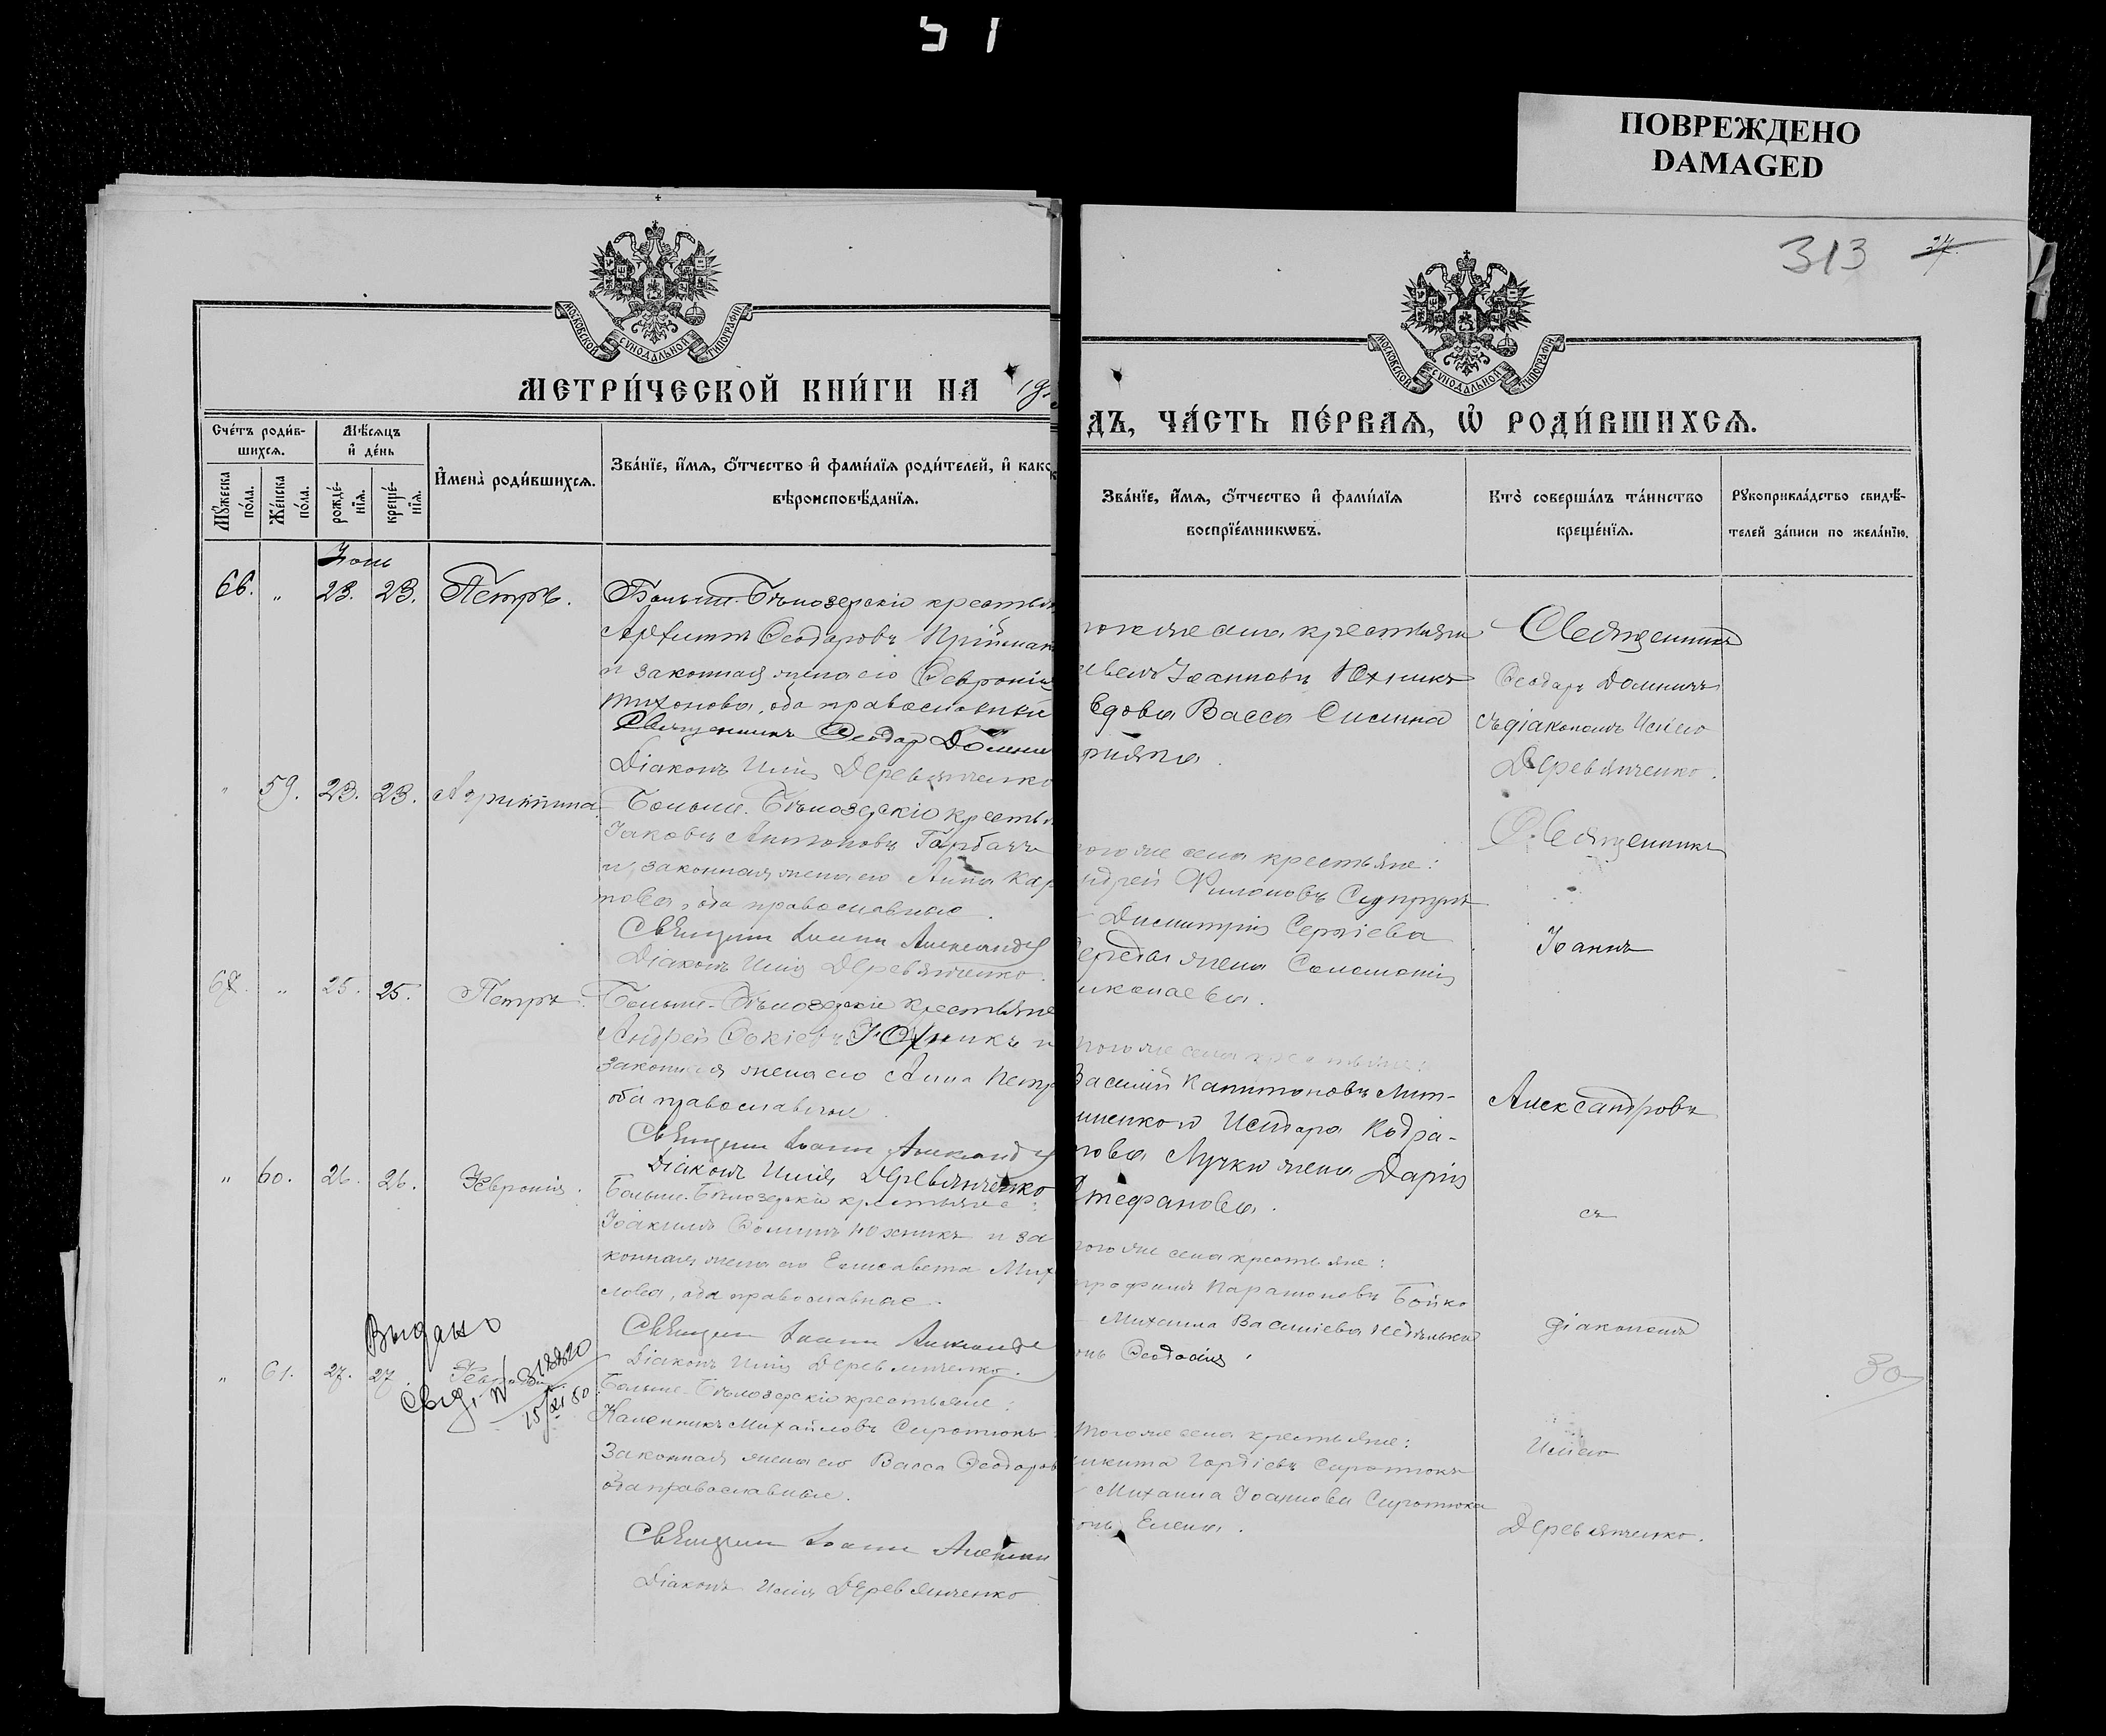 51
ПОВРЕЖДЕНО
DAMAGED
313
24.
МОСКОВСКОЙ СѴНОДАЛЬНОЙ ТИПОГРАФІИ
МОСКОВСКОЙ СѴНОДАЛЬНОЙ ТИПОГРАФІИ
МЕТРИ́ЧЕСКОЙ КНИ́ГИ НА
ДЪ, ЧА́СТЬ ПЕ́РВАѦ, Ѡ҆ РОДИ́ВШИХСѦ.
Сче́тъ роди́в-
шихсѧ.
Мꙋ́жеска по́ла.
Же́нска по́ла.
Мѣ́сѧцъ
и҆ де́нь
рожде́-
нїѧ.
креще́-
нїѧ.
И҆мена̀ роди́вшихсѧ.
Зва́нїе, и҆́мѧ, ѻ҆́тчество и҆ фами́лїѧ роди́телей, и҆ како
вѣроисповѣ́данїѧ.
Зва́нїе, и҆́мѧ, ѻ҆́тчество и҆ фами́лїѧ
воспрїе́мникѡвъ.
Кто̀ соверша́лъ та́инство
креще́нїѧ.
Рꙋкоприкла́дство свидѣ́-
телей за́писи по жела́нїю.
Іюнь
66. " 23. 23. Петръ.
Больше-Бѣлозерскіе крестьян
Ѳеодоровъ Пріймак
и законная жена его Ѳевронія
Тихонова, оба православные
Священникъ Ѳеодоръ Домни
Діаконъ Илія Деревянченко
тогоже села крестьяне
Іоанновъ Юхникъ
вдова Васса
Священникъ
Ѳеодоръ Домничъ
съ діакономъ Иліею
Деревянченко.
" 59. 23. 23. Агриппина
Больше-Бѣлозерскіе крестьян
Іаковъ Антоновъ Горбачъ
и законная жена его Анна Кар
пова, оба православные.
Священ Іоаннъ Александр
Діаконъ Илія Деревянченко.
того же села крестьяне:
ндрей Филоновъ
Димитрія Сергіева
жена Соломонія
иколаева.
Священникъ
Іоаннъ
67. " 25. 25. Петръ.
Больше-Бѣлозерскіе крестьяне
Андрей Фокіевъ Юхникъ и
законная жена его Анна Петр
оба православные.
Священ Іоаннъ Александр
Діаконъ Илія Деревянченко
того же села крестьяне:
Василій Капитоновъ Лит-
виненко и Исидора Кодра-
това Лучки жена Дарія
Стефанова.
Александровъ
" 60. 26. 26. Ѳевронія.
Больше-Бѣлозерскіе крестьяне:
Іоакимъ Ѳоминъ Юхникъ и за
конная жена его Елисавета Мих
лова, оба православные.
Священ Іоаннъ Александр
Діаконъ Илія Деревянченко.
того же села крестьяне:
Бойко
Михаила Васильева
Ѳеодосія.
съ
діакономъ
Выдано
Свід. №
15/XI 80
" 61. 27. 27. Ѳевронія
Больше-Бѣлозерскіе крестьяне:
Каленникъ Михайловъ Сиротюкъ
законная жена его Васса Ѳеодоров
оба православные.
Священ Іоаннъ Александ
Діаконъ Илія Деревянченко
Того же села крестьяне:
икита Гордіевъ Сиротюкъ
Михаила Іоаннова Сиротюка
Елена.
Иліею
Деревянченко.
30